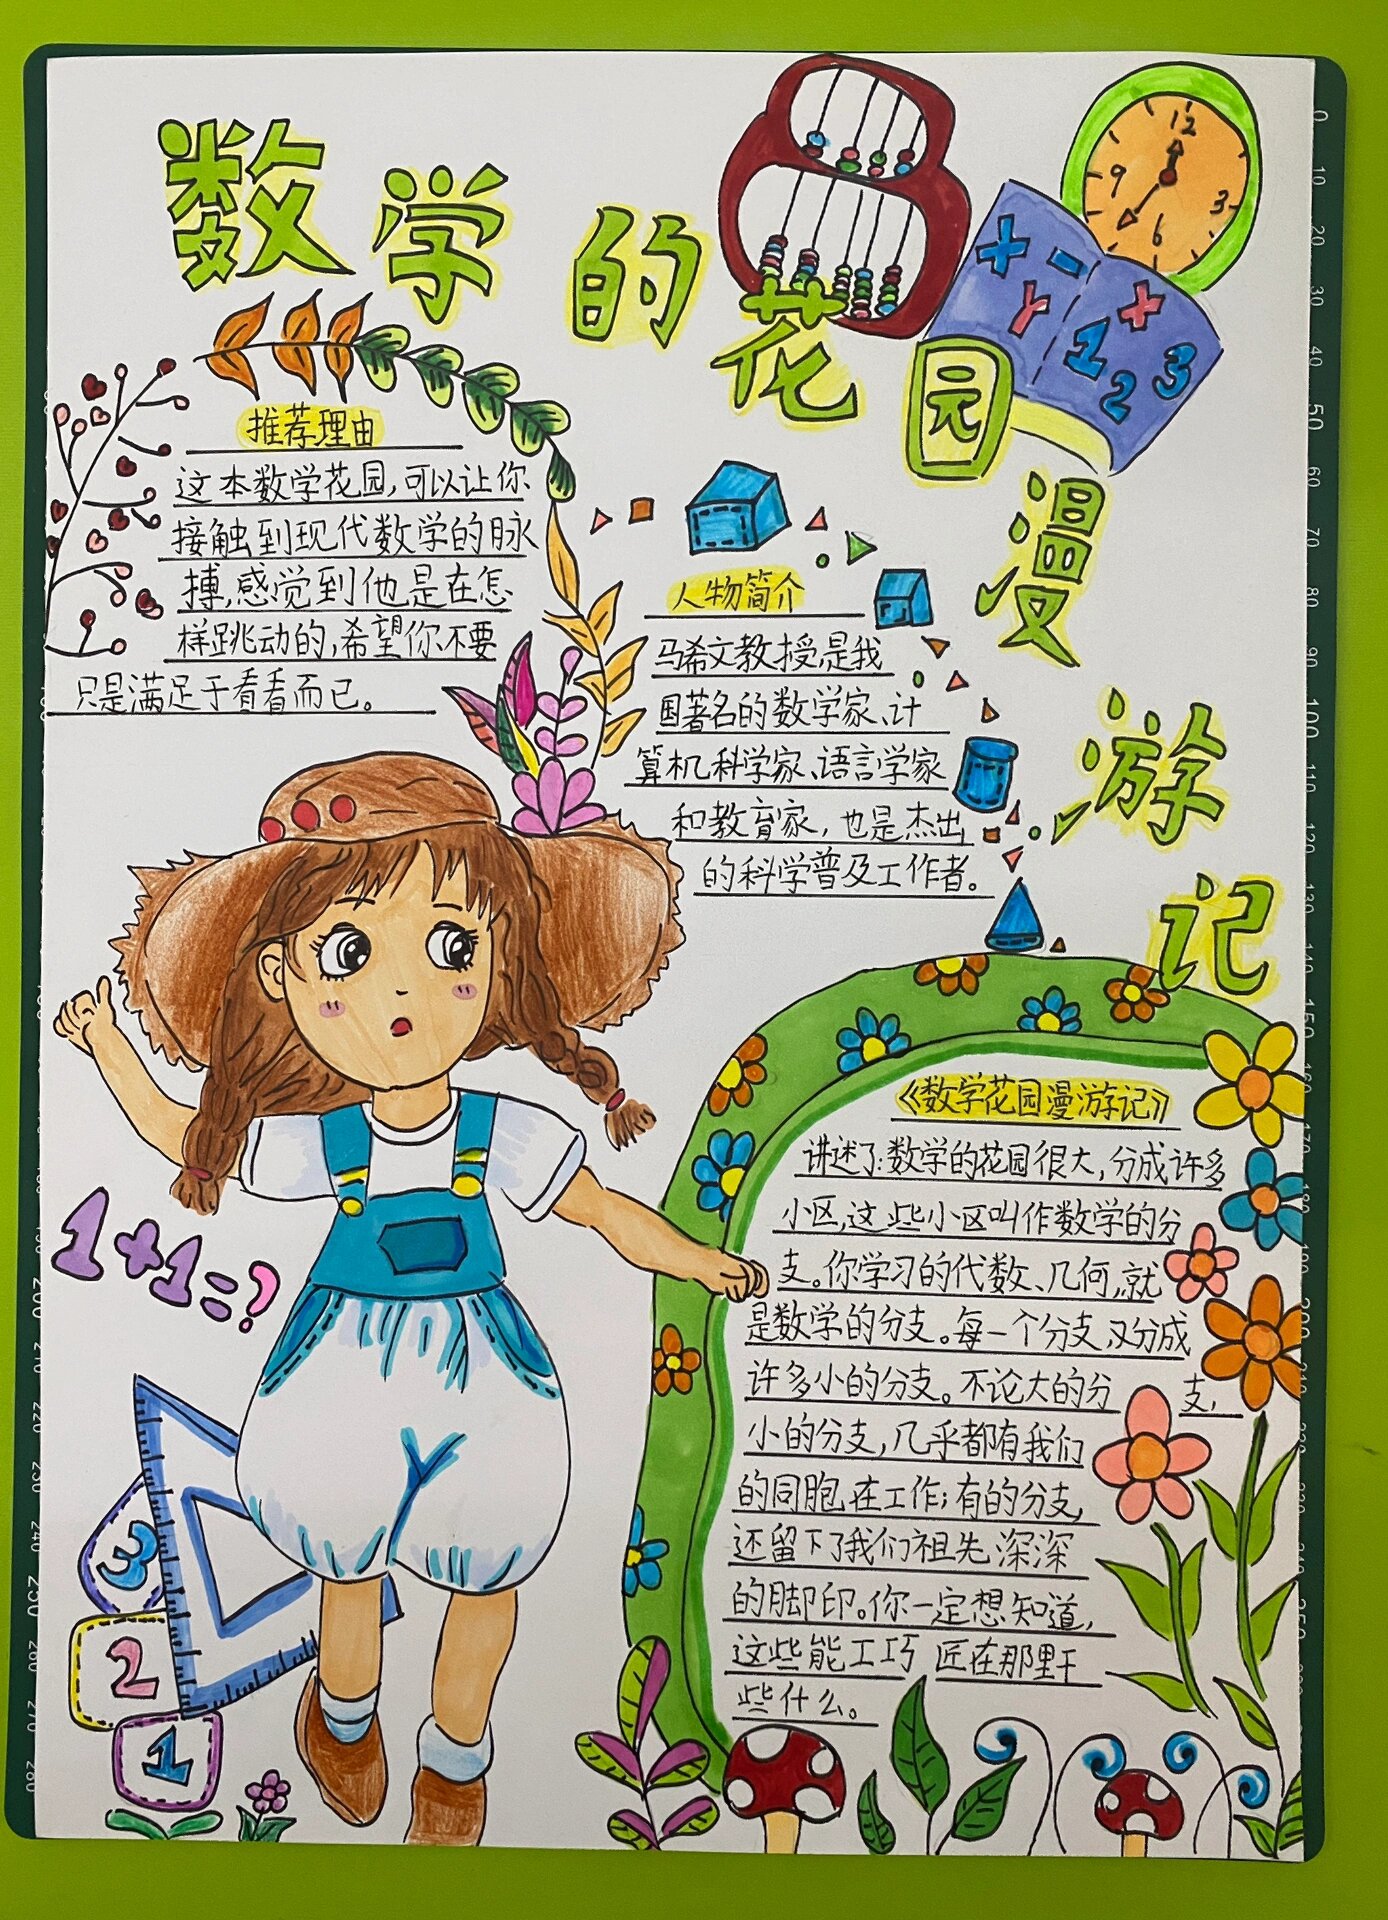 数学的花园漫游记
12
3
6
9
+ - × 1 2 3
推荐理由
这本数学花园,可以让你
接触到现代数学的脉
搏,感觉到他是在怎
样跳动的,希望你不要
只是满足于看看而已。
人物简介
马希文教授,是我
国著名的数学家、计
算机科学家、语言学家
和教育家,也是杰出
的科学普及工作者。
1+1=?
3
2
1
《数学花园漫游记》
讲述了:数学的花园很大,分成许多
小区,这些小区叫作数学的分
支。你学习的代数、几何,就
是数学的分支。每一个分支,又分成
许多小的分支。不论大的分支,
小的分支,几乎都有我们
的同胞在工作;有的分支,
还留下了我们祖先深深
的脚印。你一定想知道,
这些能工巧匠在那里干
些什么。